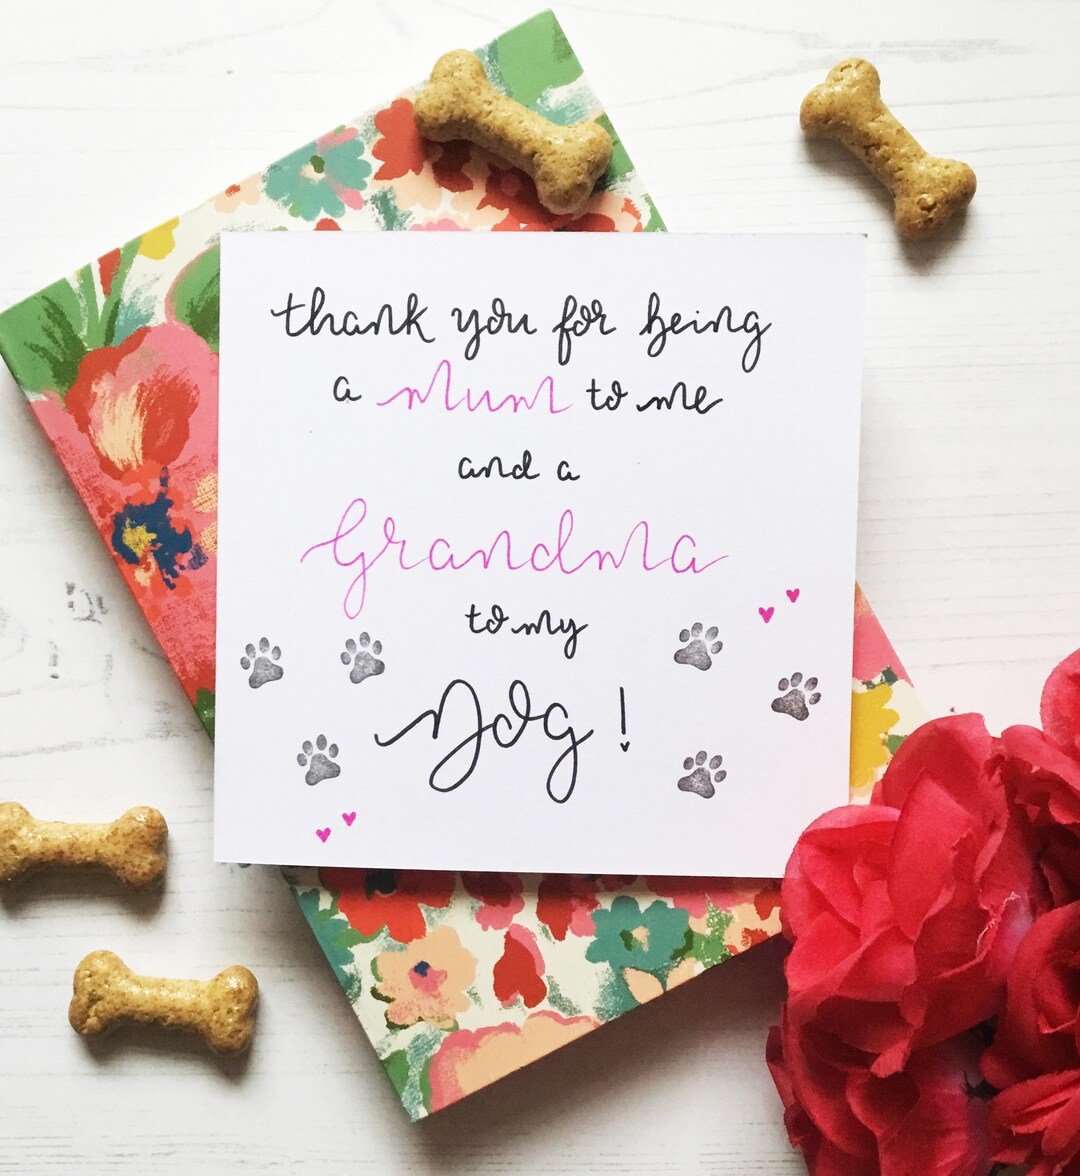 thank you for being
a mum to me
and a
Grandma
to my
Dog!